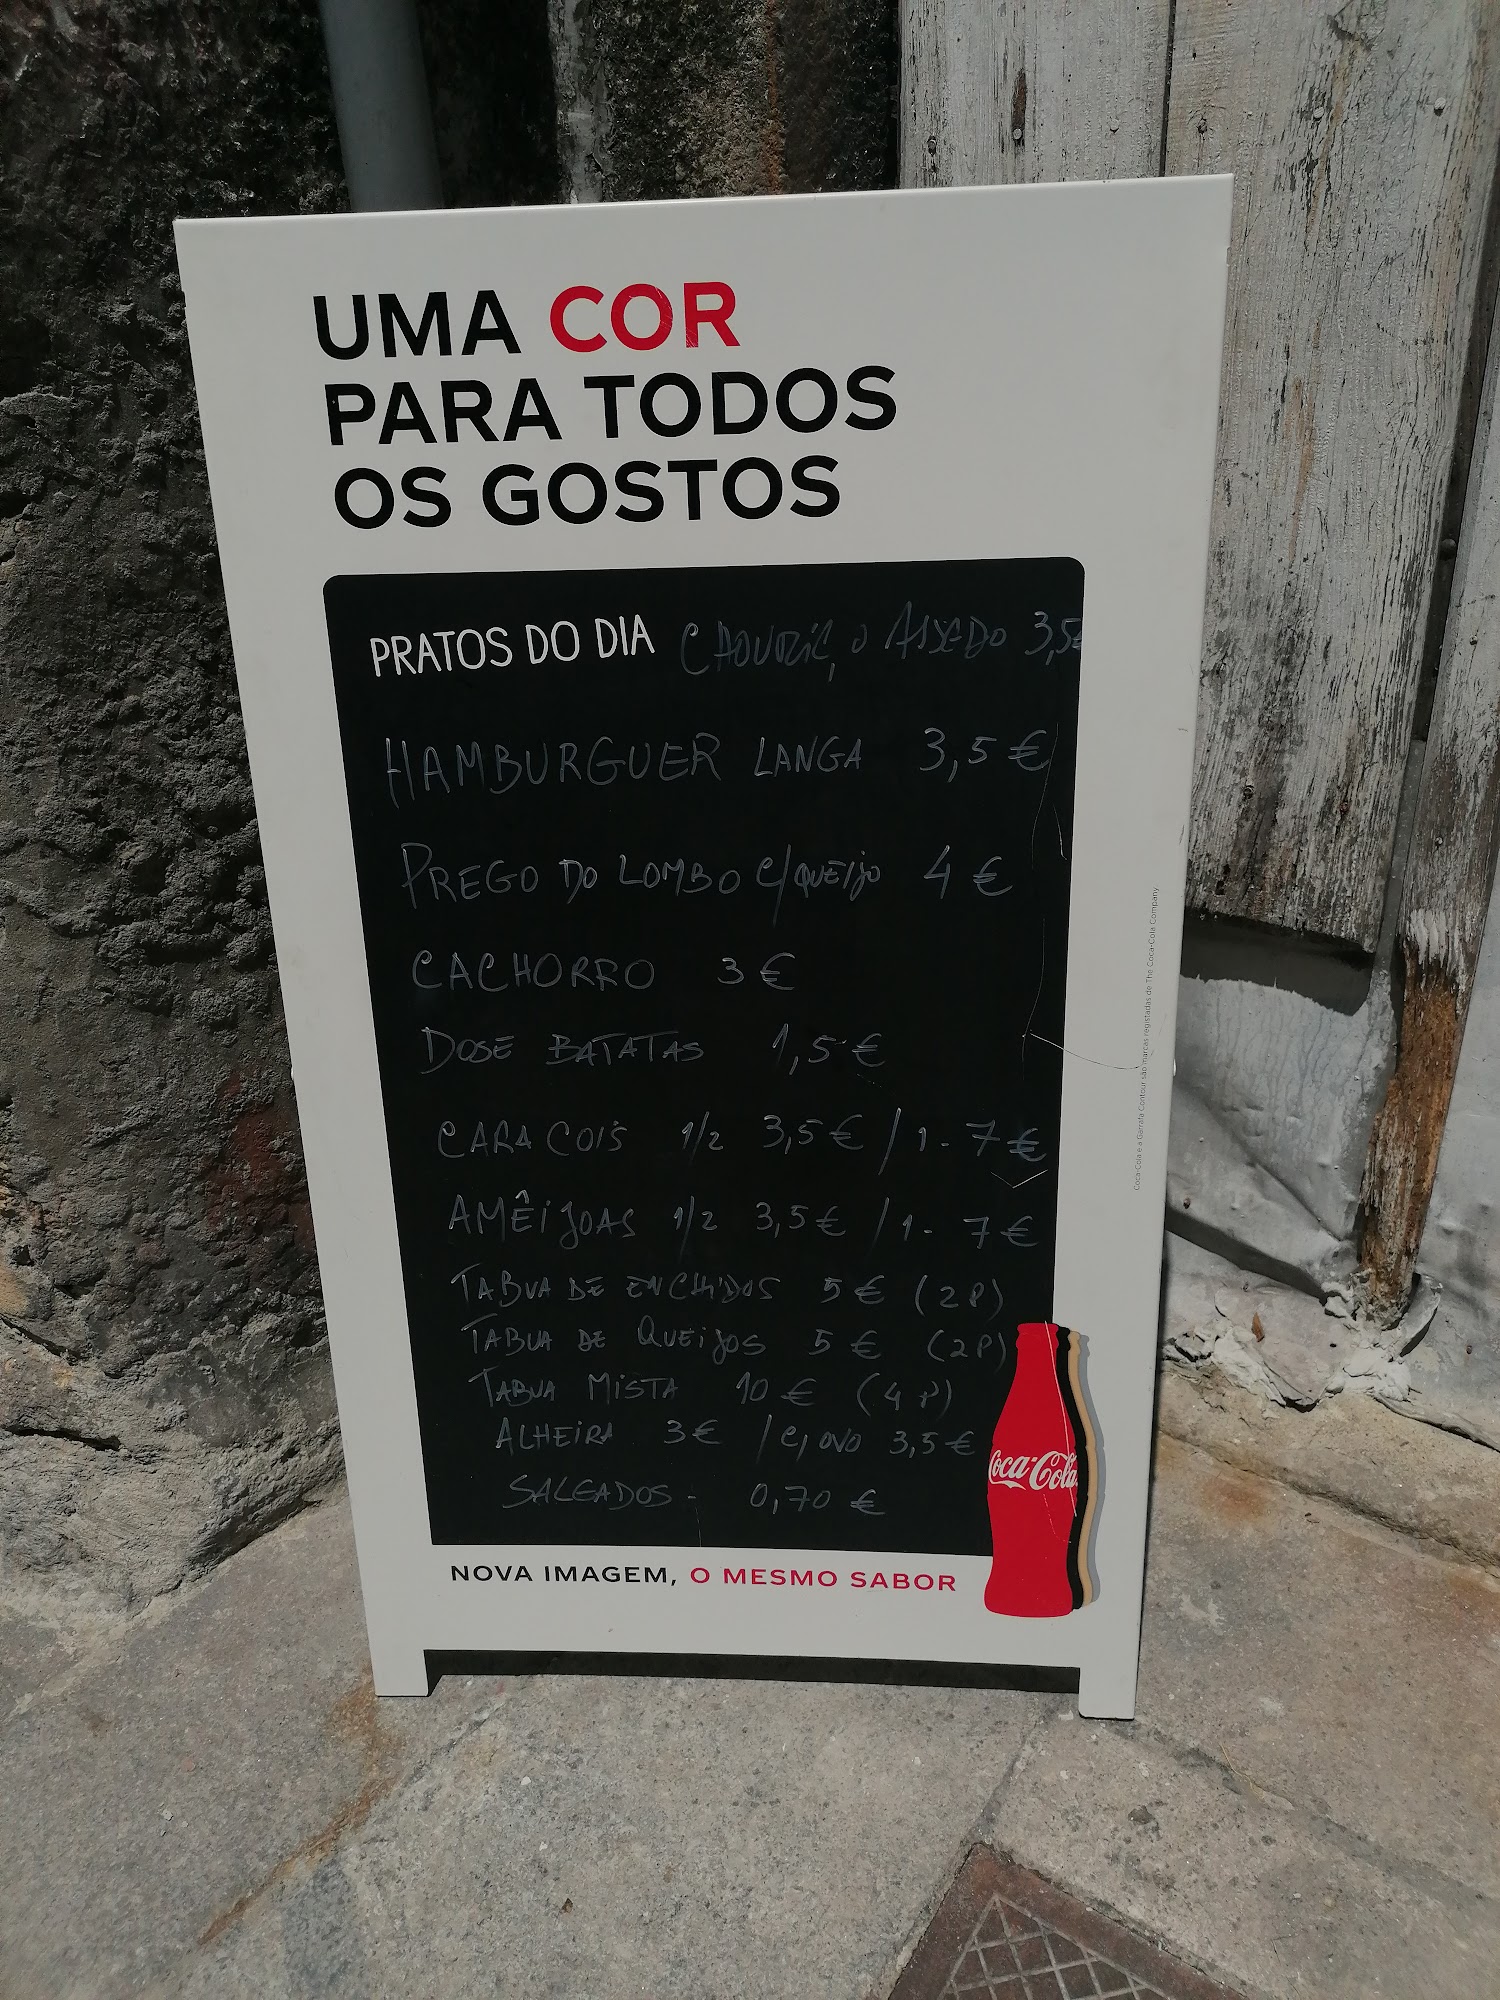 UMA COR
PARA TODOS
OS GOSTOS
PRATOS DO DIA CHOURIÇO ASSADO 3,5€
HAMBURGUER LANGA 3,5€
PREGO DO LOMBO C/QUEIJO 4€
CACHORRO 3€
DOSE BATATAS 1,5€
CARACOIS 1/2 3,5€ / 1- 7€
AMÊIJOAS 1/2 3,5€ / 1- 7€
TABUA DE ENCHIDOS 5€ (2P)
TABUA DE QUEIJOS 5€ (2P)
TABUA MISTA 10€ (4P)
ALHEIRA 3€ / C/ OVO 3,5€
SALGADOS - 0,70€
Coca-Cola
NOVA IMAGEM, O MESMO SABOR
Coca-Cola e a Garrafa Contour são marcas registadas de The Coca-Cola Company